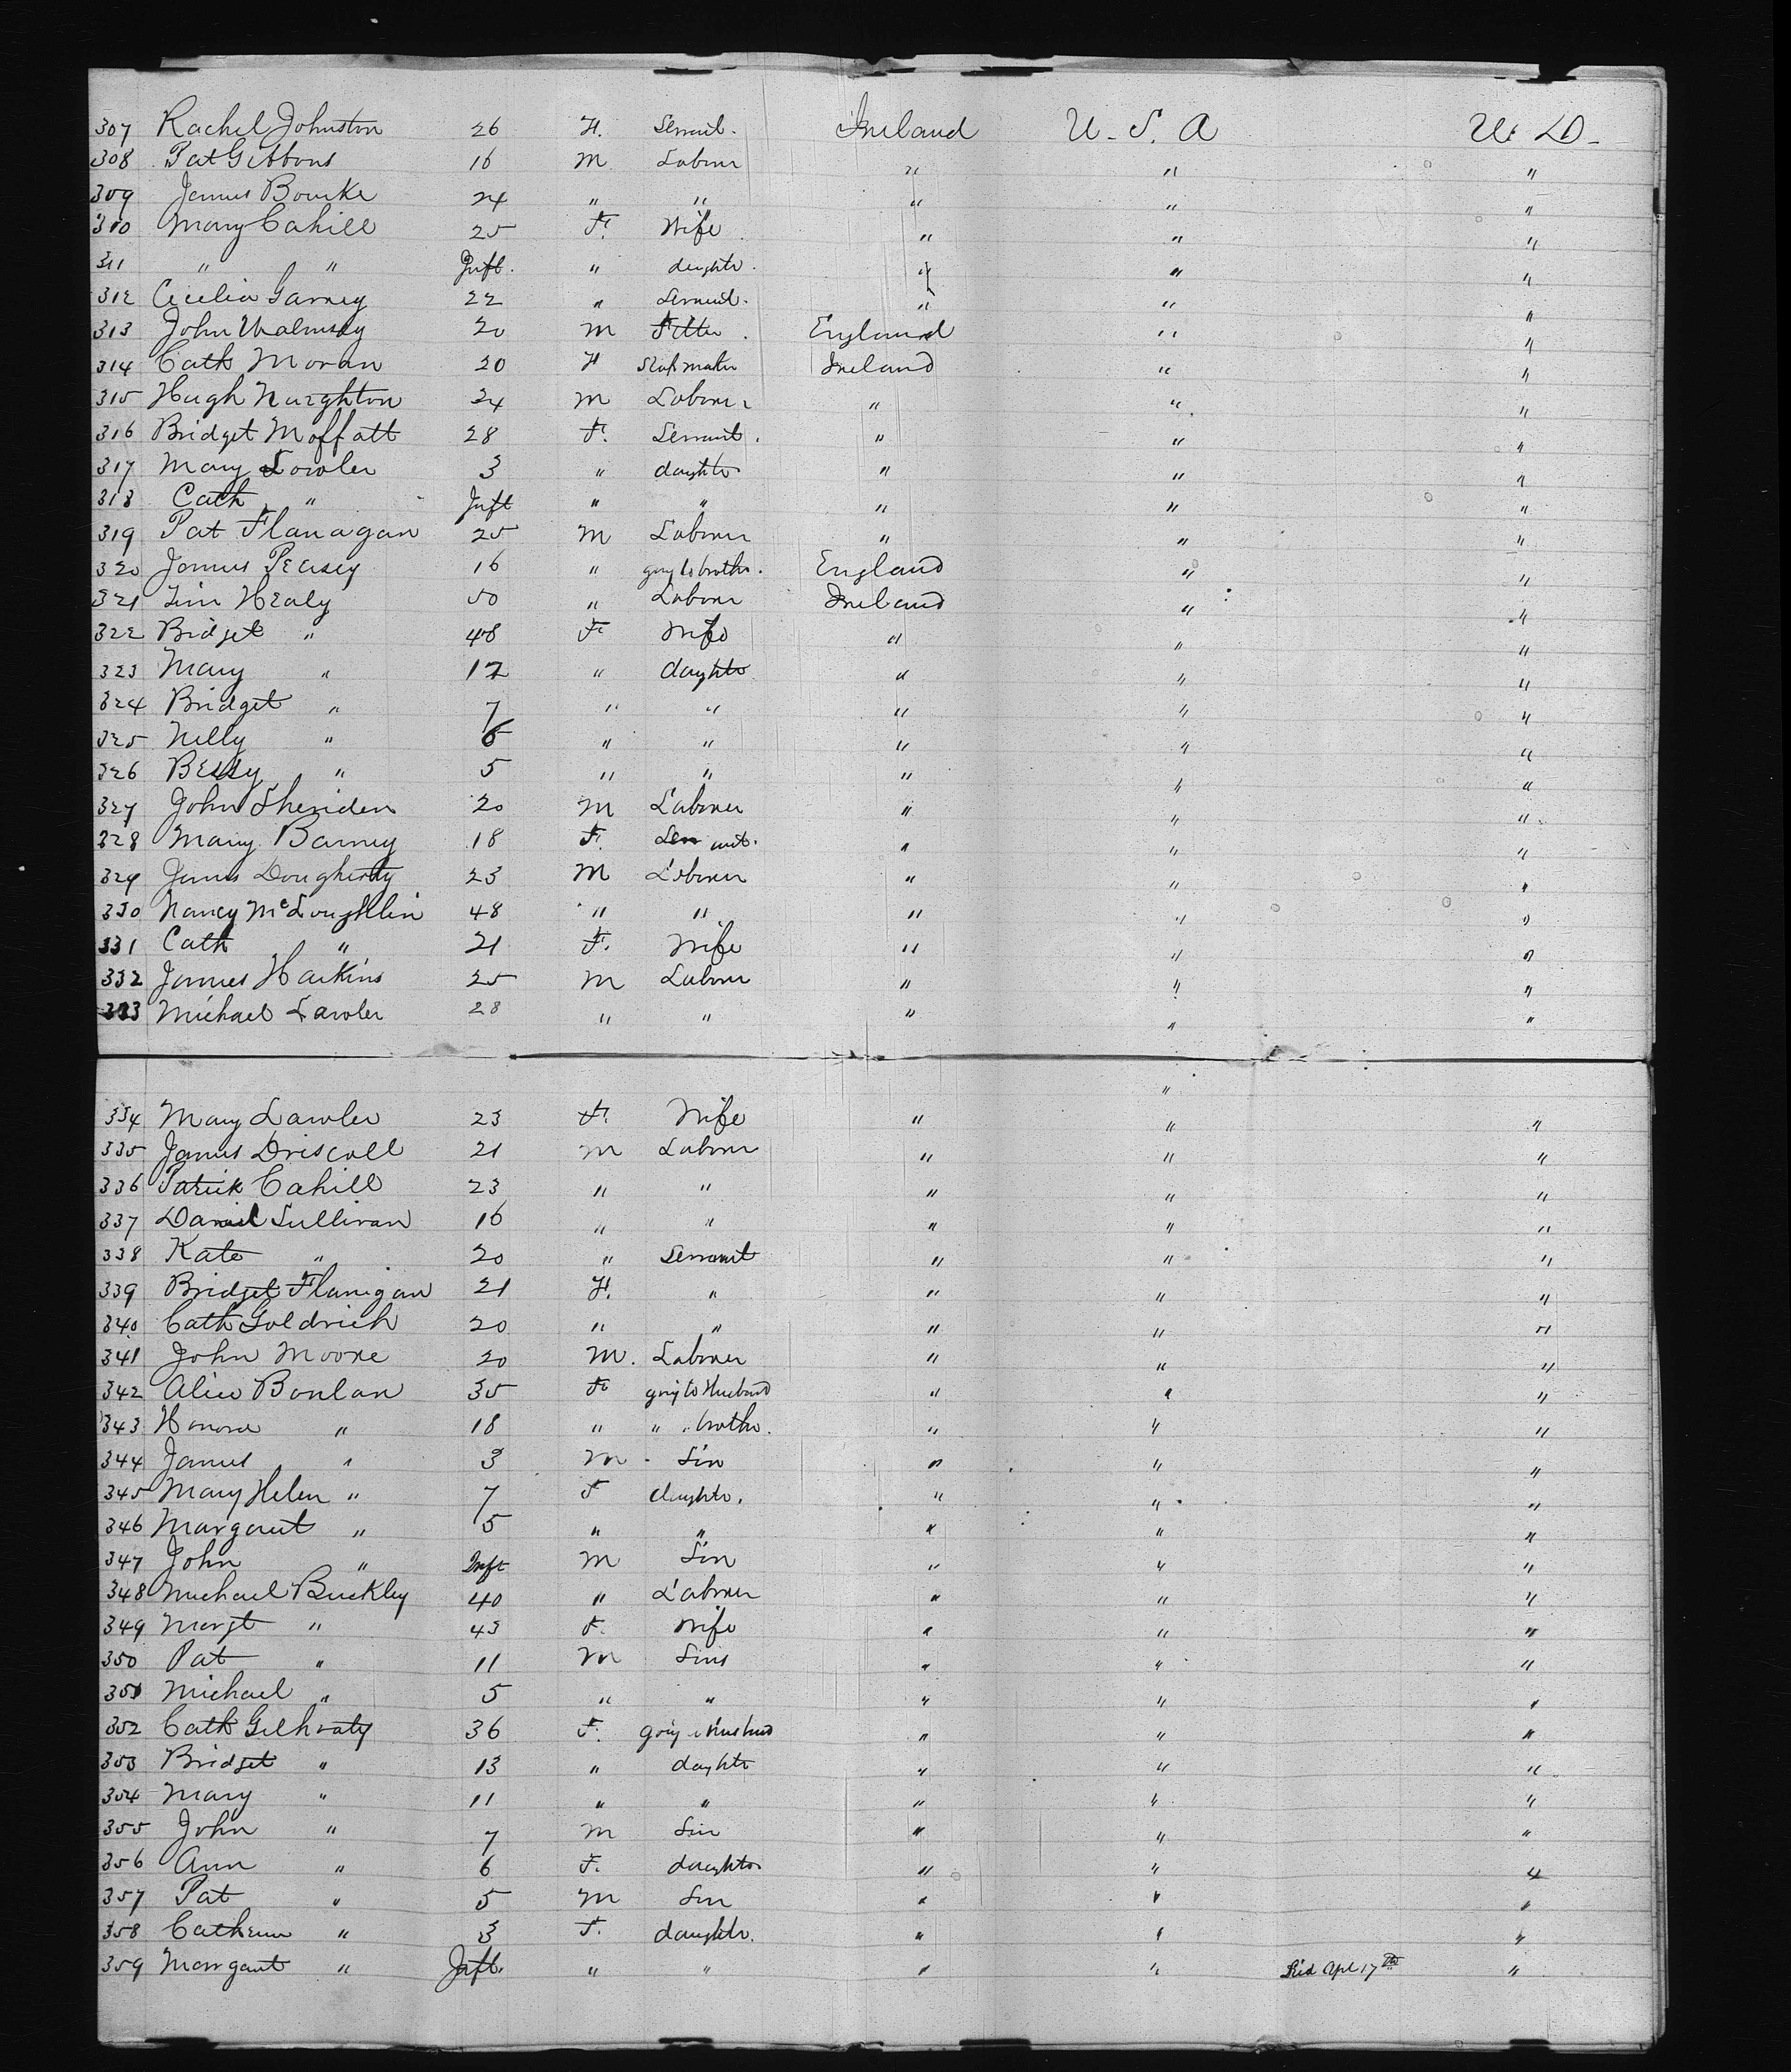 307 Rachel Johnston 26 F. Servnt. Ireland U. S. A U. D.
308 Pat Gibbons 16 M Labour " " "
309 James Bourke 24 " " " " "
310 Mary Cahill 25 F. Wife " " "
311 " " Inft. " daughtr. " " "
312 Cecilia Garvey 22 " Servnt. " " "
313 John Walmsley 20 M Fitter. England " "
314 Cath Moran 20 F maker Ireland " "
315 Hugh Naughton 24 M Labour " " "
316 Bridget Moffatt 28 F. Servant. " " "
317 Mary Lowler 3 " daughtr " " "
318 Cath " Inft " " " " "
319 Pat Flanagan 25 M Labour " " "
320 James Peasey 16 " going to brothr. England " "
321 Tim Healy 50 " Labour Ireland " "
322 Bridget " 48 F Wife " " "
323 Mary " 12 " daughtr " " "
324 Bridget " 7 " " " " "
325 Nelly " 6 " " " " "
326 Bessy " 5 " " " " "
327 John Sheriden 20 M Labourer " " "
328 Mary Barney 18 F. Servant. " " "
329 James Dougherty 23 M Labourer " " "
330 Nancy McLoughlin 48 " " " " "
331 Cath " 21 F. Wife " " "
332 James Harkins 25 M Labour " " "
333 Michael Lawler 28 " " " " "
"
334 Mary Lawler 23 F. Wife " " "
335 James Driscoll 21 M Labour " " "
336 Patrick Cahill 23 " " " " "
337 Daniel Sullivan 16 " " " " "
338 Kate " 20 " Servant " " "
339 Bridget Flanigan 21 F. " " " "
340 Cath Goldrick 20 " " " " "
341 John Moore 20 M. Labourer " " "
342 Alice Bonlan 35 F going to Husband " " "
343 Honora " 18 " " " brothr. " " "
344 James " 3 M Son " " "
345 Mary Helen " 7 F daughtr. " " "
346 Margaret " 5 " " " " "
347 John " Inft M Son " " "
348 Michael Buckley 40 " Labourer " " "
349 Margt " 43 F. Wife " " "
350 Pat " 11 M Sons " " "
351 Michael " 5 " " " " "
352 Cath Gilhraty 36 F. going to Husband " " "
353 Bridget " 13 " daughtr " " "
354 Mary " 11 " " " " "
355 John " 7 M Son " " "
356 Ann " 6 F. daughtr " " "
357 Pat " 5 M Son " " "
358 Catherine " 3 F. daughtr. " " "
359 Margaret " Inft. " " " " Died Apl 17th "